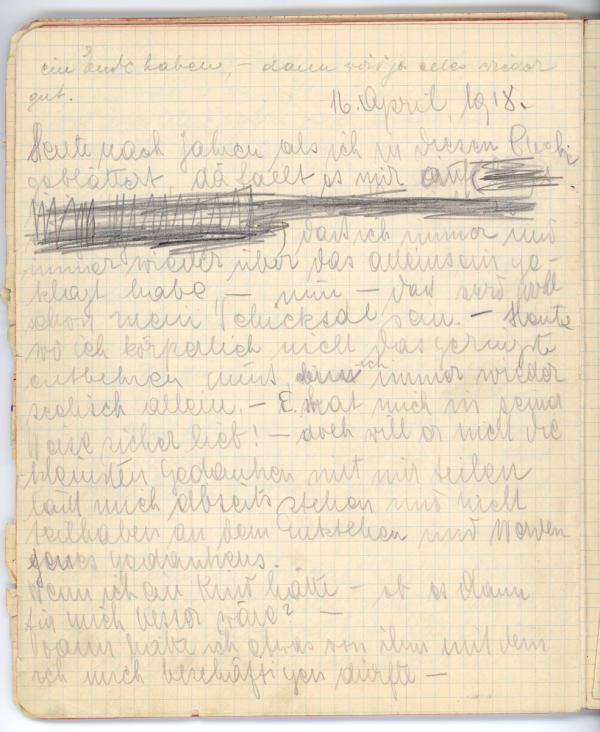 ein Ende haben, – dann wird ja alles wieder
gut.
16. April, 1918.
Heute nach Jahren als ich in diesem Buch
geblättert, da fällt es mir auf
, daß ich immer und
immer wieder über das alleinsein ge-
klagt habe, – nun – das wird wohl
schon mein Schicksal sein. – Heute
wo ich körperlich nicht das geringste
entbehren muss, ich immer wieder
seelisch allein. – E. hat mich in seiner
Weise sicher lieb! – doch will er nicht die
kleinsten Gedanken mit mir teilen
läßt mich abseits stehen und nicht
teilhaben an dem Entstehen und Werden
jenes gedankens.
Wenn ich ein Kind hätte – ob es dann
für mich besser wäre? –
Dann hätte ich etwas von ihm mit dem
ich mich beschäftigen dürfte –